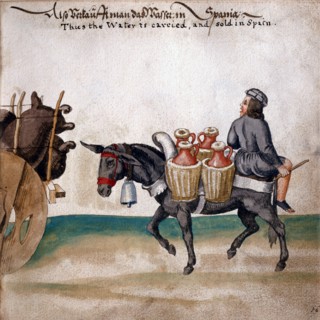 Also Verkauft Man das Wasser, in Spania
Thus the Water is carried, and sold in Spain.